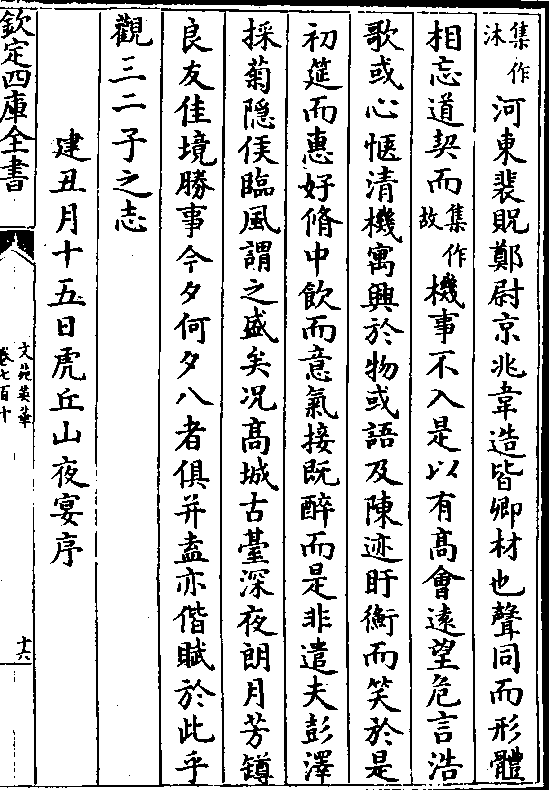 集作
沐
河東裴貺鄭尉京兆韋造皆卿材也聲同而形體
相忘道契而
集作
故
機事不入是以有高會遠望危言浩
歌或心愜清機寓興於物或語及陳迹盱衡而笑於是
初筵而惠好脩中飲而意氣接既醉而是非遣夫彭澤
採菊隠侯臨風謂之盛矣况高城古臺深夜朗月芳罇
良友佳境勝事今夕何夕八者俱并盍亦偕賦於此乎
觀三二子之志
建丑月十五日虎丘山夜宴序
欽定四庫全書
文苑英華
卷七百十
十六